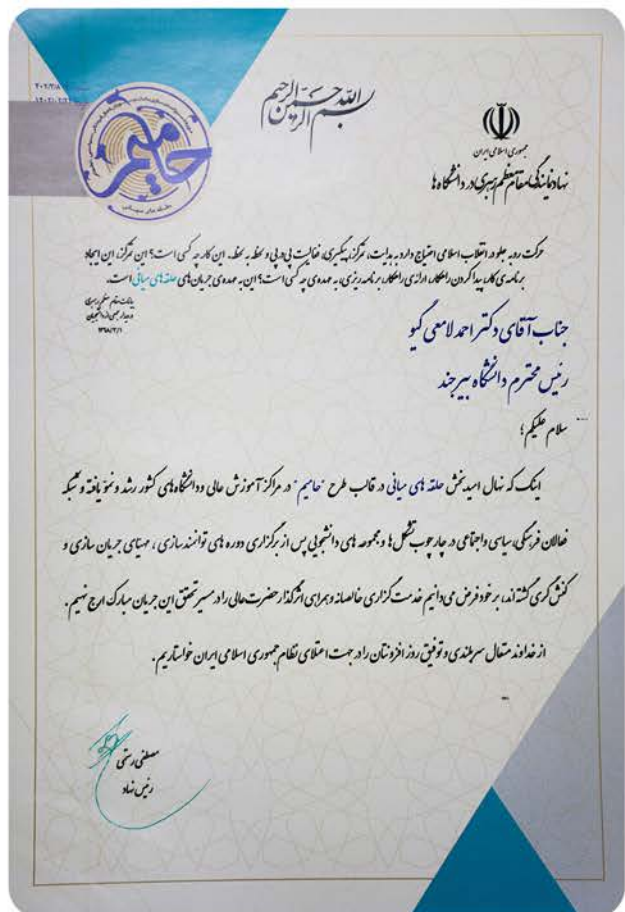 بسم الله الرحمن الرحیم
جمهوری اسلامی ایران
نهاد نمایندگی مقام معظم رهبری در دانشگاه‌ها
حامیم
حلقه های میانی
حرکت رو به جلو در انقلاب اسلامی احتیاج دارد به هدایت، تمرکز، پیگیری، فعالیت پی‌در‌پی و لحظه به لحظه. این کار چه کسی است؟ این تمرکز، این ایجاد
برنامه‌ی کار، پیدا کردن راهکار، ارائه‌ی راهکار، برنامه‌ریزی، به عهده‌ی چه کسی است؟ این به عهده‌ی جریان‌های حلقه‌های میانی است.
بیانات مقام معظم رهبری
در دیدار جمعی از دانشجویان
۱۳۹۸/۳/۱
جناب آقای دکتر احمد لامعی گیو
رئیس محترم دانشگاه بیرجند
سلام علیکم؛
اینک که نهال امیدبخش حلقه های میانی در قالب طرح "حامیم" در مراکز آموزش عالی و دانشگاه‌های کشور رشد و نمو یافته و شبکه
فعالان فرهنگی، سیاسی و اجتماعی در چارچوب تشکل ها و مجموعه های دانشجویی پس از برگزاری دوره های توانمندسازی، مهیای جریان سازی و
کنش گری گشته اند، بر خود فرض می‌دانیم خدمت گزاری خالصانه و همراهی اثرگذار حضرت‌عالی را در مسیر تحقق این جریان مبارک ارج نهیم.
از خداوند متعال سربلندی و توفیق روز افزونتان را در جهت اعتلای نظام جمهوری اسلامی ایران خواستاریم.
مصطفی رستمی
رئیس نهاد